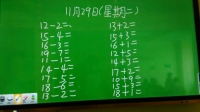 11月29日(星期二)
12-2= 13+2=
15-4= 15+3=
16-3= 16+1=
19-7= 12+5=
11-1= 14+3=
14-4= 17+2=
17-5= 10+9=
18-6= 15+3=
13-2= 18+1=